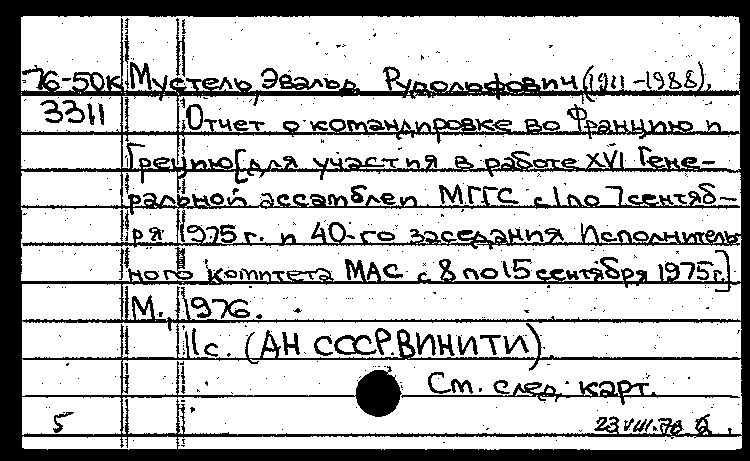 76-50к Мустель, Эвальд Рудольфович (1911-1988).
3311 Отчет о командировке во Францию и
Грецию [для участия в работе XVI Гене-
ральной ассамблеи МГГС с 1 по 7 сентяб-
ря 1975 г. и 40-го заседания Исполнитель
ного комитета МАС с 8 по 15 сентября 1975г.]
М., 1976.
11с. (АН СССР. ВИНИТИ).
См. след. карт.
5 23.VIII.76